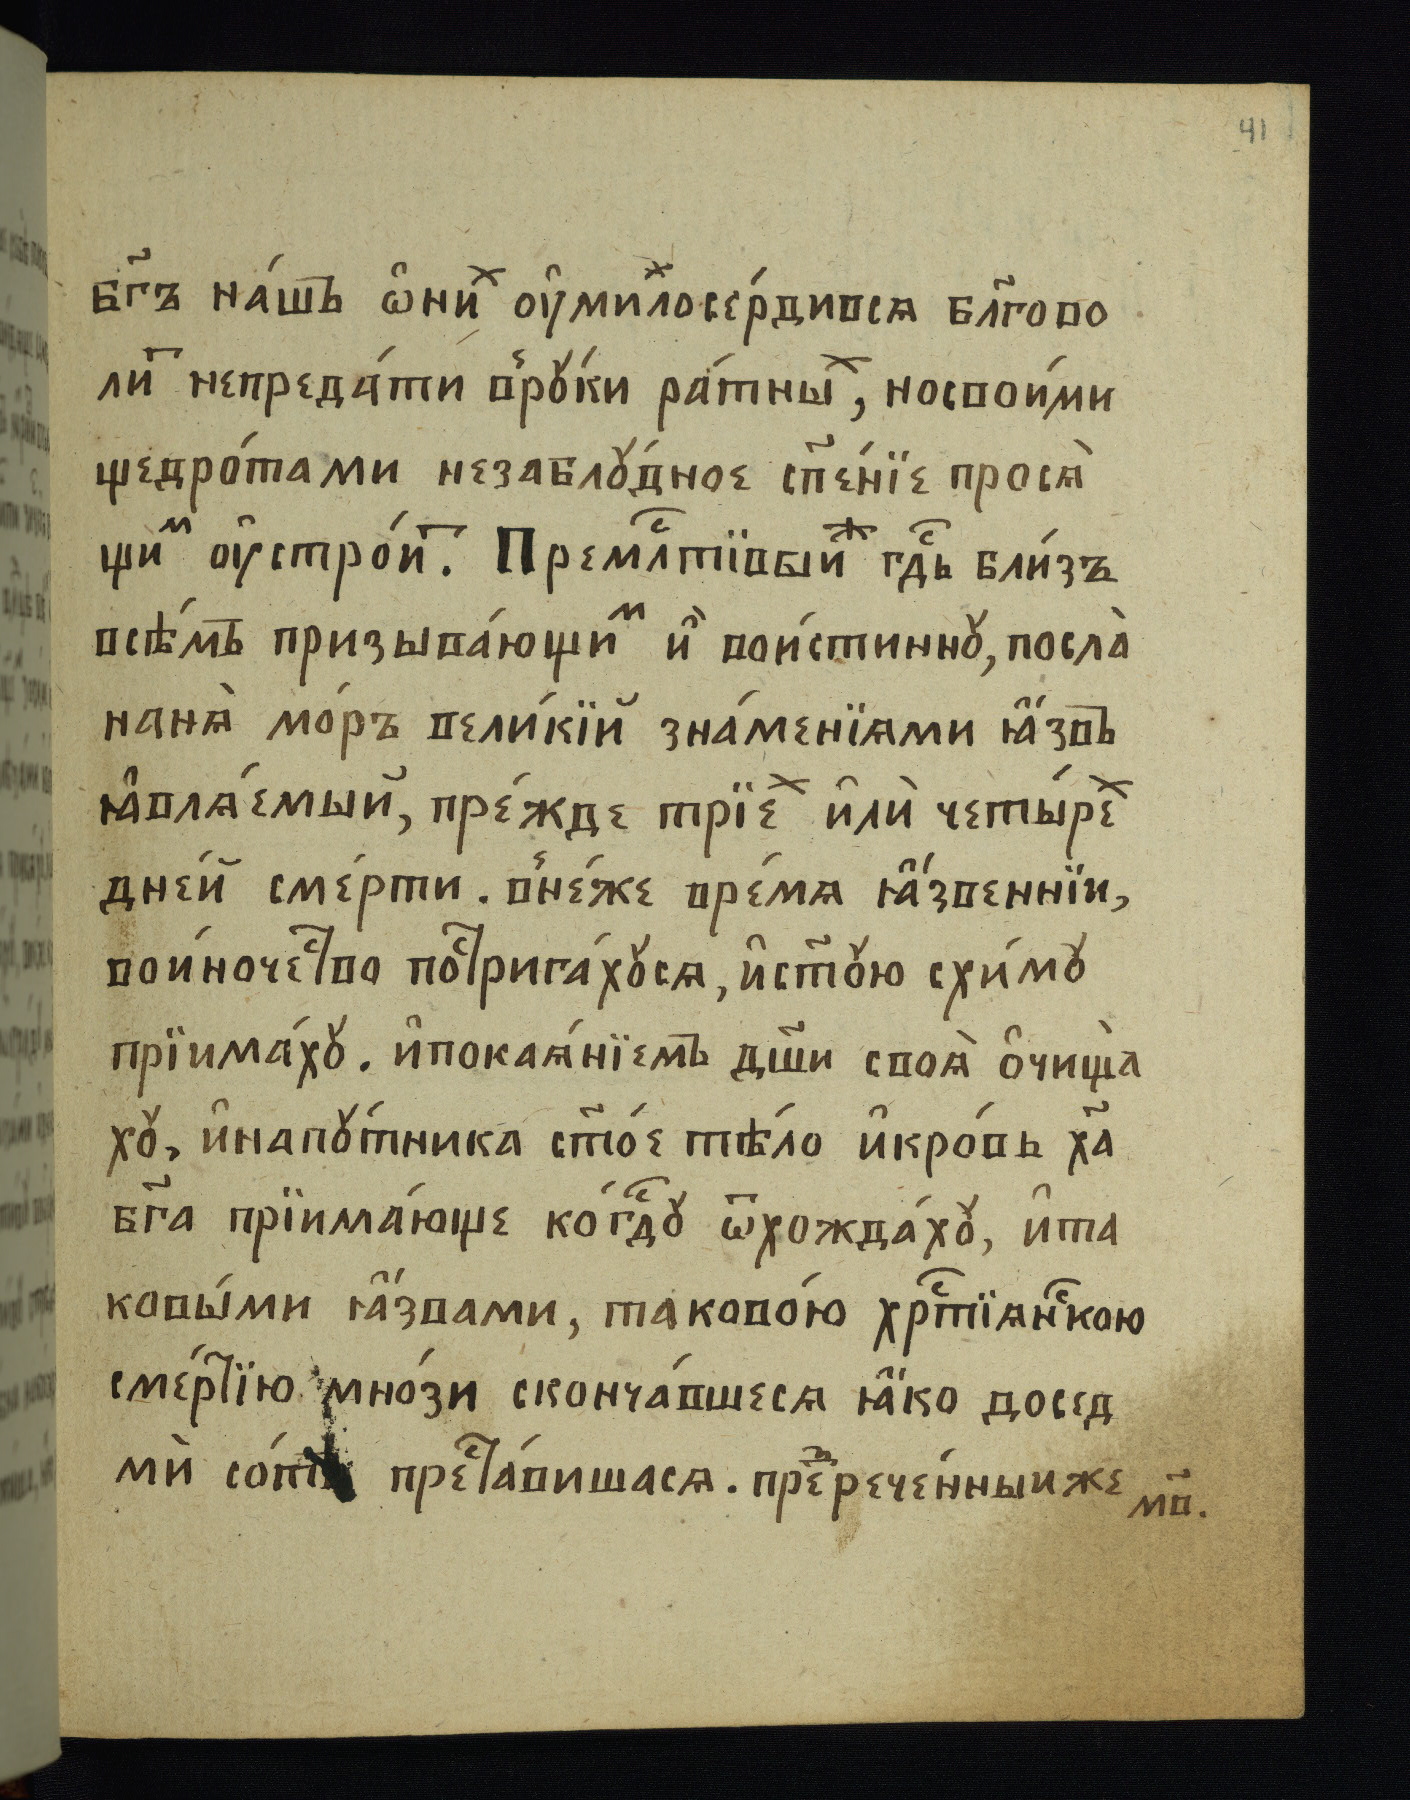 41
бг҃ъ на́шъ ѡ҆ниⷯ ѹ҆миⷧлосе́рдивсѧ бл҃гово
лиⷮ непреда́ти в̾рꙋ́ки ра́тныⷯ, носвои́ми
щедро́тами незаблꙋ́дное сп҃е́нїе просѧ̀
щиⷨ ѹ҆стро́иⷮ. Премⷭ҇лтївыиⷤ гдⷭ҇ь бли́зъ
всѣ́мъ призыва́ющиⷨ и҆̀ вои́стиннꙋ, посла̀
нанѧ̀ мо́ръ вели́кїй зна́менїѧми ꙗ҆́звъ
ꙗ҆влѧ́емый, пре́жде трїеⷯ и҆лѝ четы́реⷯ
дне́й сме́рти. в̾не́же вре́мѧ ꙗ҆́звеннїи,
вои́ночеⷭ҇тво поⷭ҇трига́хꙋсѧ, и҆ст҃ꙋю схи́мꙋ
прїима́хꙋ. и҆покаѧ́нїемъ дш҃и своѧ̀ ѻ҆чища̀
хꙋ, и҆напꙋ́тника ст҃о́е тѣ́ло и҆кро́вь хрⷭ҇а
бг҃а прїима́юще ко́гдⷭ҇ꙋ ѿхожда́хꙋ, и҆та
ковы́ми ꙗ҆́звами, таково́ю хрⷭ҇тїѧнⷭ҇кою
сме́ртїю мно́зи сконча́вшесѧ ꙗ҆́ко досед
мѝ со́тъ преⷭ҇та́вишасѧ. преⷣрече́нныиже
мв҃.